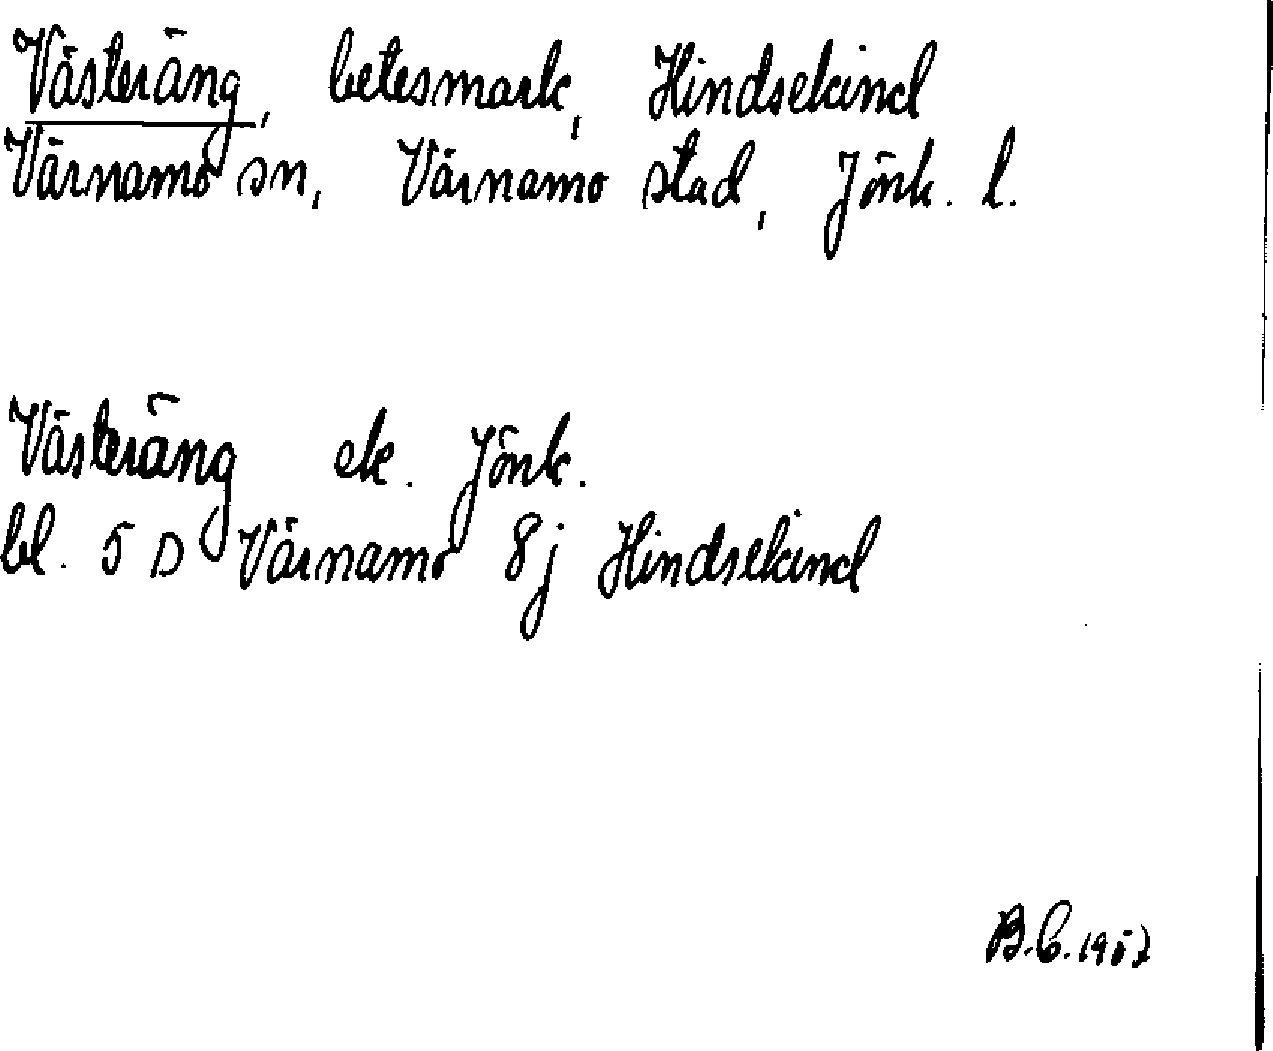 Västeräng, betesmark, Hindsekind
Värnamo sn, Värnamo stad, Jönk. l.
Västeräng ek. Jönk.
bl. 5 D Värnamo 8j Hindsekind
B.C. 1957